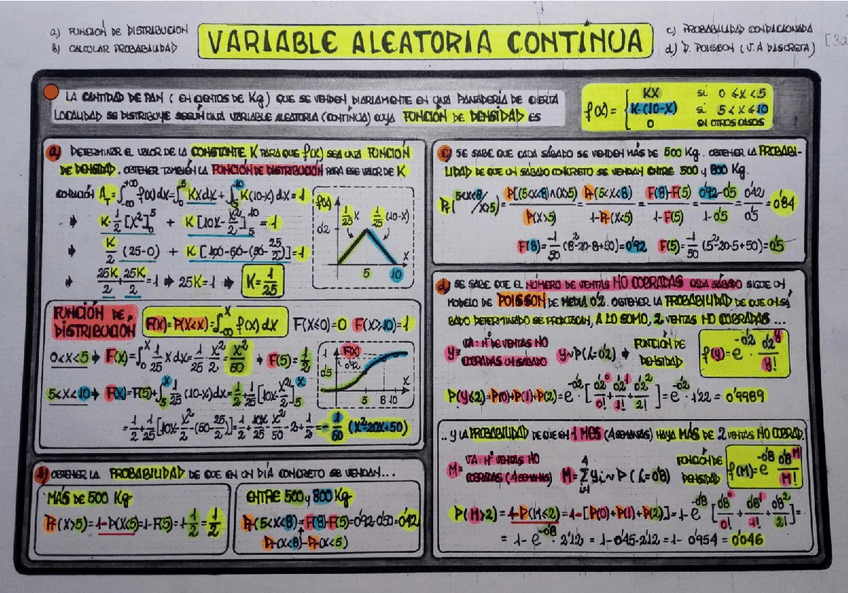 a) FUNCIÓN DE DISTRIBUCIÓN
b) CALCULAR PROBABILIDAD
VARIABLE ALEATORIA CONTINUA
c) PROBABILIDAD CONDICIONADA
d) D. POISSON (V.A DISCRETA)
LA CANTIDAD DE PAN (EN CIENTOS DE Kg) QUE SE VENDEN DIARIAMENTE EN UNA PANADERÍA DE CIERTA
LOCALIDAD SE DISTRIBUYE SEGÚN UNA VARIABLE ALEATORIA (CONTINUA) CUYA FUNCIÓN DE DENSIDAD ES
f(x)= { KX si 0≤x<5
K·(10-X) si 5≤x≤10
0 EN OTROS CASOS
a) DETERMINAR EL VALOR DE LA CONSTANTE K PARA QUE f(x) SEA UNA FUNCIÓN
DE DENSIDAD. OBTENER TAMBIÉN LA FUNCIÓN DE DISTRIBUCIÓN PARA ESE VALOR DE K
CONDICIÓN A_T=∫f(x)dx=∫Kxdx+∫K(10-x)dx=1
→ K·1/2[X²]₀⁵ + K[10X-X²/2]₅¹⁰=1
→ K/2(25-0) + K[100-50-(50-25/2)]=1
→ 25K/2+25K/2=1 → 25K=1 → K=1/25
f(x)
1/25 X
1/25(10-x)
0'2
5 10 X
FUNCIÓN DE
DISTRIBUCIÓN
F(X)=P(X<x)=∫f(x)dx F(X≤0)=0 F(X≥10)=1
0<x≤5 → F(x)=∫₀ˣ1/25 x dx=1/25·x²/2=x²/50 → F(5)=1/2
5<x<10 → F(x)=F(5)+∫₅ˣ1/25(10-x)dx=1/2+1/25[10X-X²/2]₅ˣ
=1/2+1/25[10X-X²/2-(50-25/2)]=1/2+10X/25-X²/50-2+1/2=-1/50(X²-20X+50)
1 F(X)
0'92
0'5
5 8 10 X
b) OBTENER LA PROBABILIDAD DE QUE EN UN DÍA CONCRETO SE VENDAN...
MÁS DE 500 Kg
Pr(X>5)=1-P(X≤5)=1-F(5)=1-1/2=1/2
ENTRE 500 y 800 Kg
Pr(5<x<8)=F(8)-F(5)=0'92-0'50=0'42
Pr(x<8)-Pr(x<5)
c) SE SABE QUE CADA SÁBADO SE VENDEN MÁS DE 500 Kg. OBTENER LA PROBABI-
LIDAD DE QUE UN SÁBADO CONCRETO SE VENDAN ENTRE 500 y 800 Kg.
Pr(5<x<8/x>5)=P[(5<x<8)∩(x>5)]/P(x>5)=Pr(5<x<8)/1-Pr(x<5)=F(8)-F(5)/1-F(5)=0'92-0'5/1-0'5=0'42/0'5=0'84
F(8)=-1/50(8²-20·8+50)=0'92 F(5)=-1/50(5²-20·5+50)=0'5
d) SE SABE QUE EL NÚMERO DE VENTAS NO COBRADAS CADA SÁBADO SIGUE UN
MODELO DE POISSON DE MEDIA 0'2. OBTENER LA PROBABILIDAD DE QUE UN SÁ-
BADO DETERMINADO SE PRODUZCAN, A LO SUMO, 2 VENTAS NO COBRADAS...
Y= VA: Nº DE VENTAS NO
COBRADAS UN SÁBADO Y~P(λ=0'2) → FUNCIÓN DE
DENSIDAD f(y)=e^-0'2·0'2^y/y!
P(Y≤2)=P(0)+P(1)+P(2)=e^-0'2·[0'2⁰/0!+0'2¹/1!+0'2²/2!]=e^-0'2·1'22=0'9989
...Y LA PROBABILIDAD DE QUE EN 1 MES (4 SEMANAS) HAYA MÁS DE 2 VENTAS NO COBRAD.
M= VA: Nº VENTAS NO
COBRADAS (4 SEMANAS) M=∑Yi~P(λ=0'8) FUNCIÓN DE
DENSIDAD f(M)=e^-0'8·0'8^M/M!
P(M>2)=1-P(M≤2)=1-[P(0)+P(1)+P(2)]=1-e^-0'8[0'8⁰/0!+0'8¹/1!+0'8²/2!]=
=1-e^-0'8·2'12=1-0'45·2'12=1-0'954=0'046